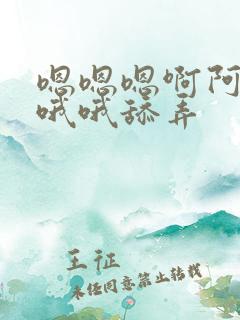 嗯嗯嗯啊阿
哦哦舔弄
王征
未经同意禁止转载